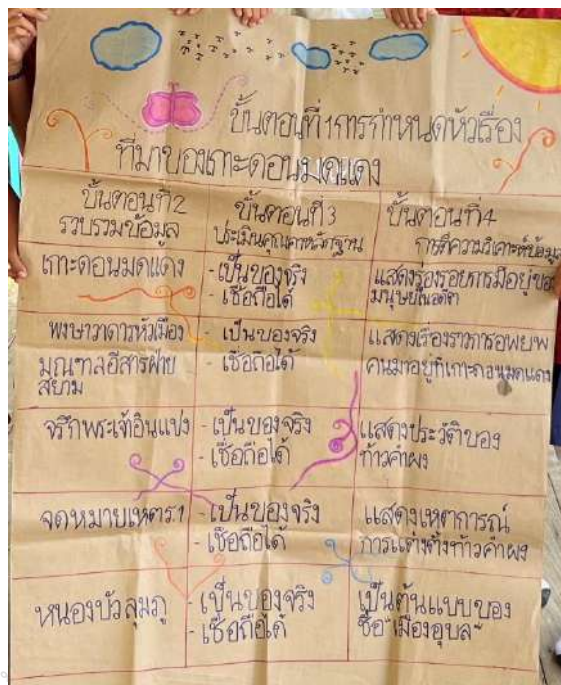 ขั้นตอนที่ 1 การกำหนดหัวเรื่อง
ที่มาของเกาะดอนมดแดง
ขั้นตอนที่ 2
รวบรวมข้อมูล
ขั้นตอนที่ 3
ประเมินคุณค่าหลักฐาน
ขั้นตอนที่ 4
การตีความวิเคราะห์ข้อมูล
เกาะดอนมดแดง
- เป็นของจริง
- เชื่อถือได้
แสดงร่องรอยการมีอยู่ของ
มนุษย์ในอดีต
พงษาวาดารหัวเมือง
มณฑลอีสารฝ่าย
สยาม
- เป็นของจริง
- เชื่อถือได้
แสดงเรื่องราวการอพยพ
คนมาอยู่ที่เกาะดอนมดแดง
จรึกพระเจ้าอินแปง
- เป็นของจริง
- เชื่อถือได้
แสดงประวัติของ
ท้าวคำผง
จดหมายเหตุร.1
- เป็นของจริง
- เชื่อถือได้
แสดงเหตุการณ์
การแต่งตั้งท้าวคำผง
หนองบัวลุมภู
- เป็นของจริง
- เชื่อถือได้
เป็นต้นแบบของ
ชื่อ "เมืองอุบล"